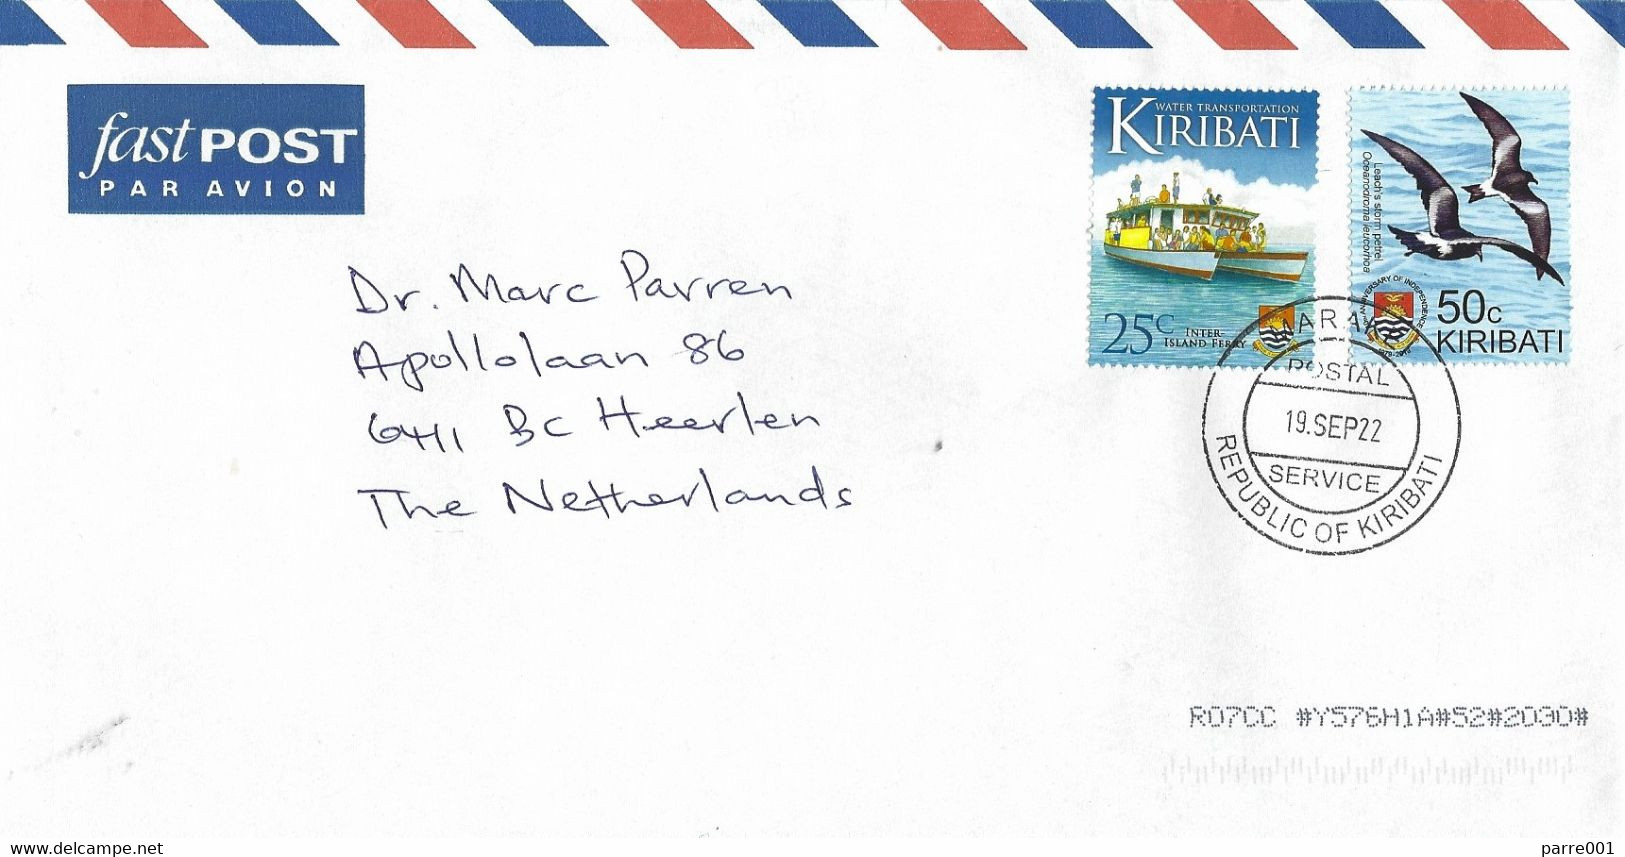 fast POST
PAR AVION
WATER TRANSPORTATION
KIRIBATI
25c
INTER-
ISLAND FERRY
Leach's storm petrel
Oceanodroma leucorrhoa
ANNIVERSARY OF INDEPENDENCE
50c
KIRIBATI
POSTAL
19.SEP22
SERVICE
REPUBLIC OF KIRIBATI
Dr. Marc Parren
Apollolaan 86
6411 BC Heerlen
The Netherlands
R07CC #Y576H1A#52#2030#
delcampe.net
parre001